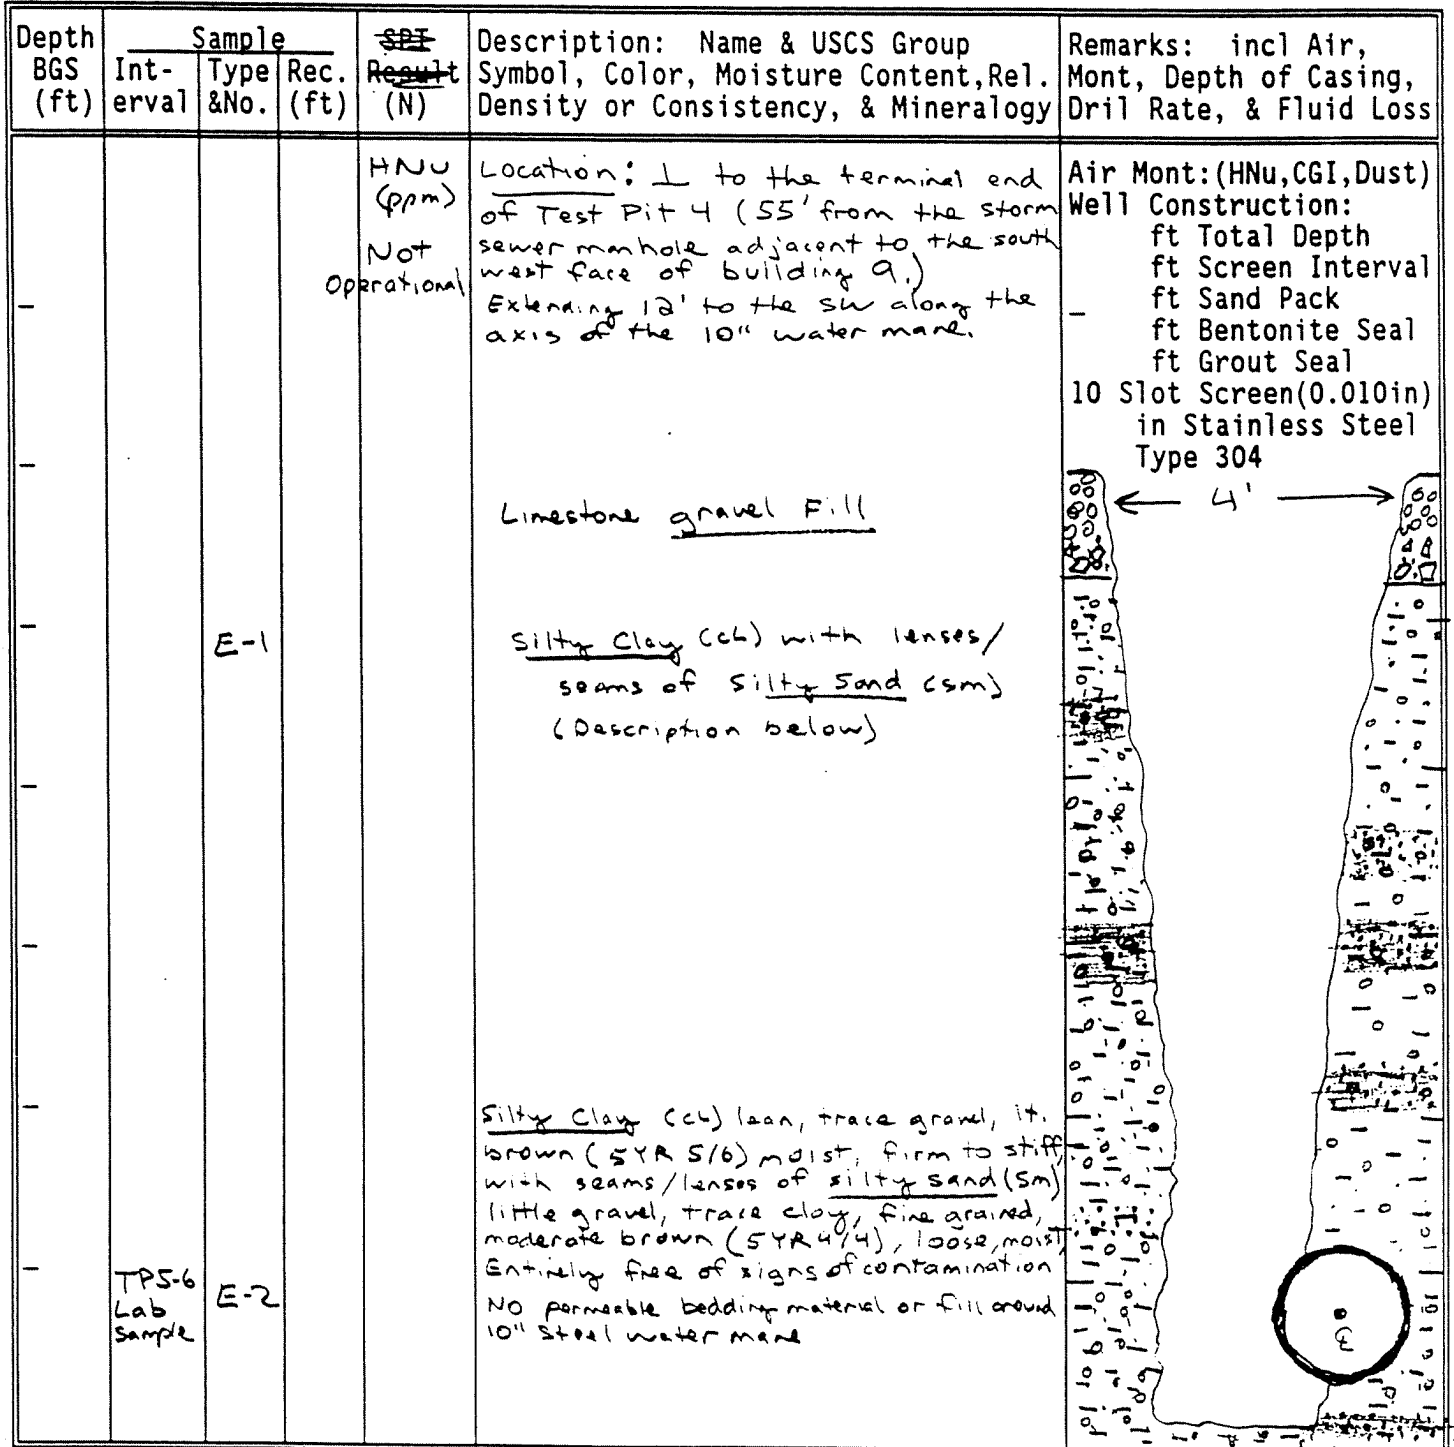 Depth BGS (ft)
Sample
Int-erval
Type &No.
Rec. (ft)
SPT Result (N)
Description: Name & USCS Group
Symbol, Color, Moisture Content,Rel.
Density or Consistency, & Mineralogy
Remarks: incl Air,
Mont, Depth of Casing,
Dril Rate, & Fluid Loss
HNU
(ppm)
Not
Operational
Location: ⊥ to the terminal end
of Test Pit 4 (55' from the storm
sewer manhole adjacent to the south
west face of building 9.)
Extending 12' to the SW along the
axis of the 10" water mane.
Air Mont:(HNu,CGI,Dust)
Well Construction:
ft Total Depth
ft Screen Interval
ft Sand Pack
ft Bentonite Seal
ft Grout Seal
10 Slot Screen(0.010in)
in Stainless Steel
Type 304
4'
Limestone gravel Fill
E-1
Silty Clay (CL) with lenses/
seams of Silty Sand (SM)
(Description below)
Silty Clay (CL) lean, trace gravel, lt.
brown (5YR 5/6) moist, firm to stiff,
with seams/lenses of silty sand (SM)
little gravel, trace clay, fine grained,
moderate brown (5YR 4/4), loose, moist,
Entirely free of signs of contamination
No permeable bedding material or fill around
10" Steel water mane
TP5-6
Lab
Sample
E-2